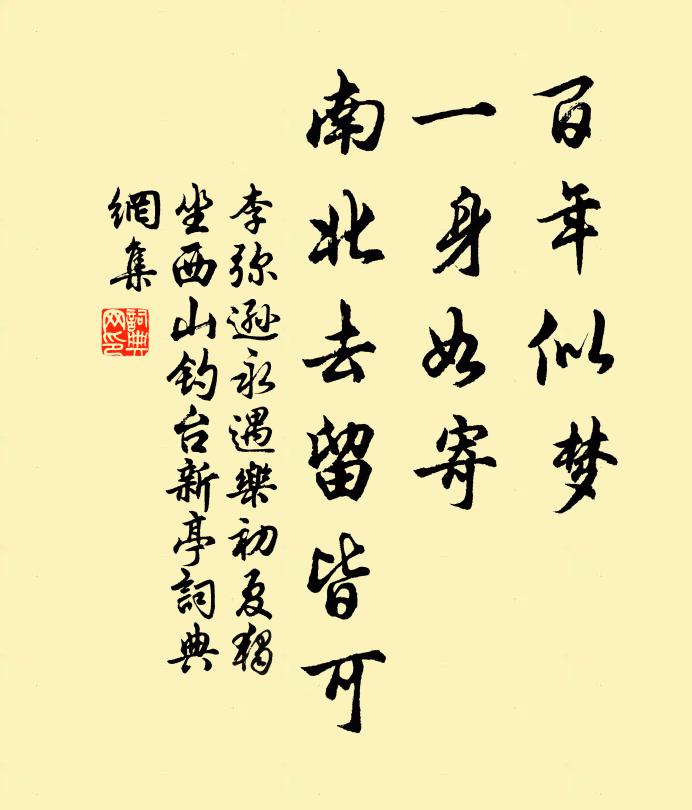 百年似梦
一身如寄
南北去留皆可
李弥遜永遇樂初夏独
坐西山钓台新亭詞典
網集
詞典
网印